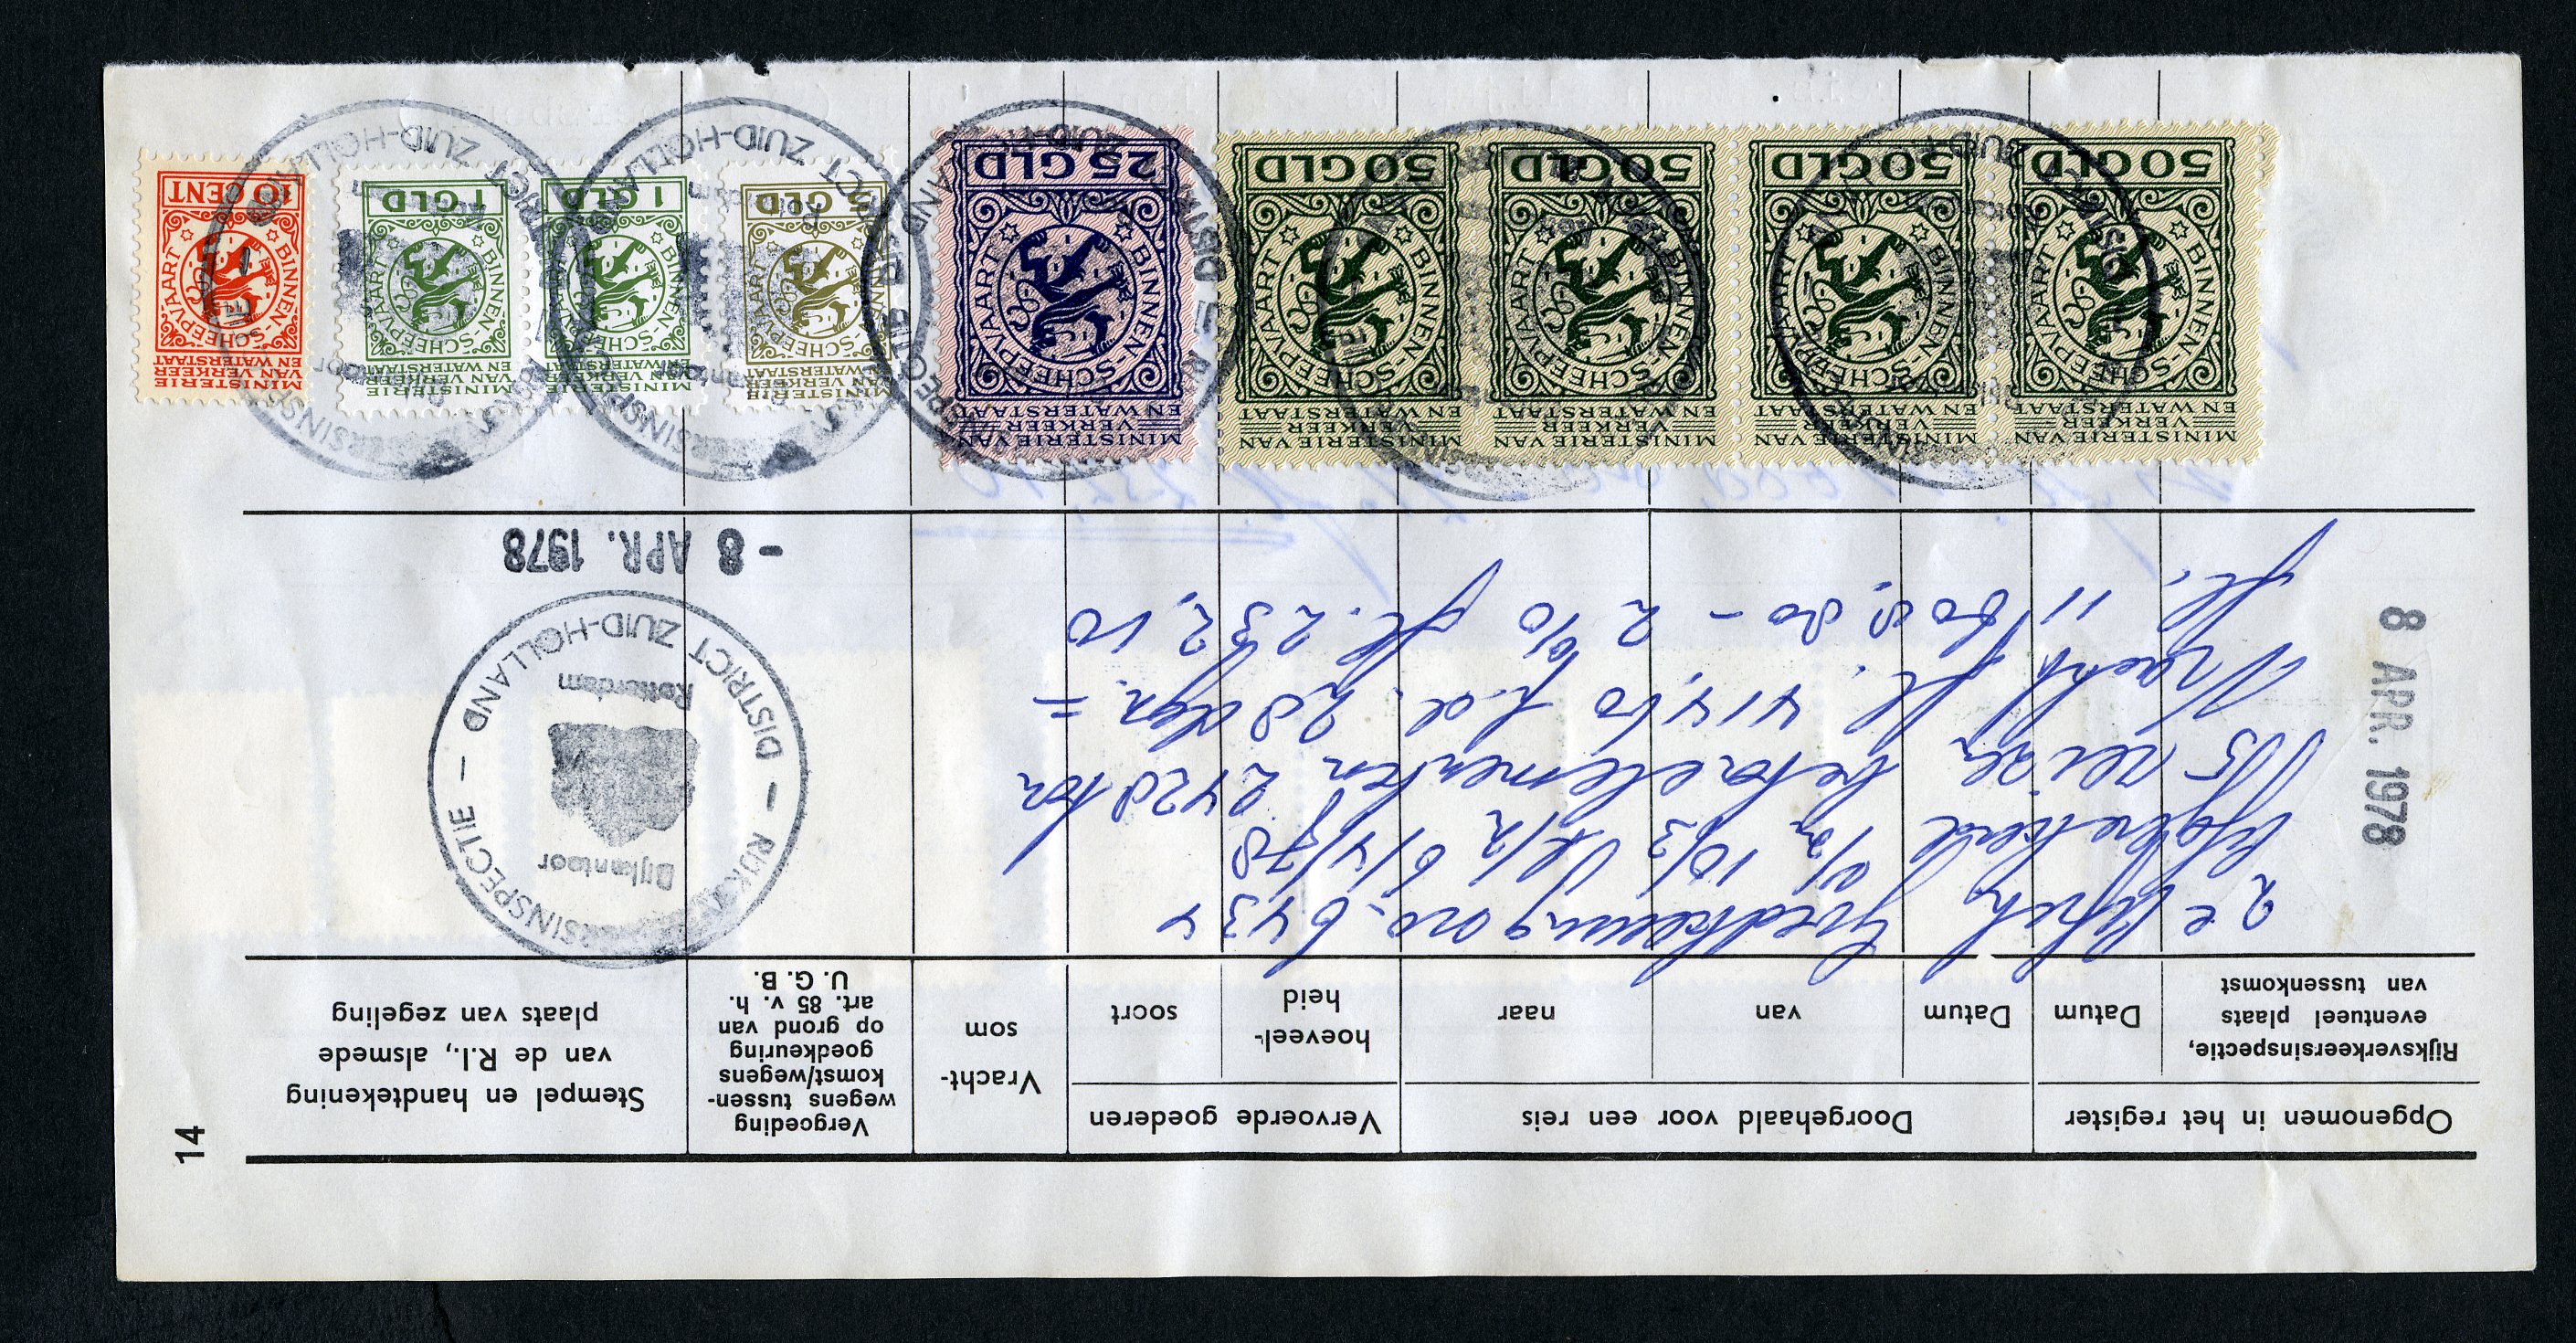 14
Opgenomen in het register
Doorgehaald voor een reis
Vervoerde goederen
Vracht-
som
Vergoeding
wegens tussen-
komst/wegens
goedkeuring
op grond van
art. 85 v. h.
U. G. B.
Stempel en handtekening
van de R.I., alsmede
plaats van zegeling
Rijksverkeersinspectie,
eventueel plaats
van tussenkomst
Datum
Datum
van
naar
hoeveel-
heid
soort
8 APR. 1978
2e
Goedkeuring no. 6434
t/m 6/4/78
115 reizen betonelementen 2428 ton
Vracht fl. 414,60 p.d. 28 dgn. =
fl. 11608.80 - 2% fl. 232,10
RIJKSVERKEERSINSPECTIE - DISTRICT ZUID-HOLLAND -
Bijkantoor
Rotterdam
- 8 APR. 1978
MINISTERIE VAN
VERKEER
EN WATERSTAAT
BINNEN-SCHEEPVAART
50 GLD
MINISTERIE VAN
VERKEER
EN WATERSTAAT
BINNEN-SCHEEPVAART
50 GLD
MINISTERIE VAN
VERKEER
EN WATERSTAAT
BINNEN-SCHEEPVAART
50 GLD
MINISTERIE VAN
VERKEER
EN WATERSTAAT
BINNEN-SCHEEPVAART
50 GLD
MINISTERIE VAN
VERKEER
EN WATERSTAAT
BINNEN-SCHEEPVAART
25 GLD
MINISTERIE
VAN VERKEER
EN WATERSTAAT
BINNEN-SCHEEPVAART
5 GLD
MINISTERIE
VAN VERKEER
EN WATERSTAAT
BINNEN-SCHEEPVAART
1 GLD
MINISTERIE
VAN VERKEER
EN WATERSTAAT
BINNEN-SCHEEPVAART
1 GLD
MINISTERIE
VAN VERKEER
EN WATERSTAAT
BINNEN-SCHEEPVAART
10 CENT